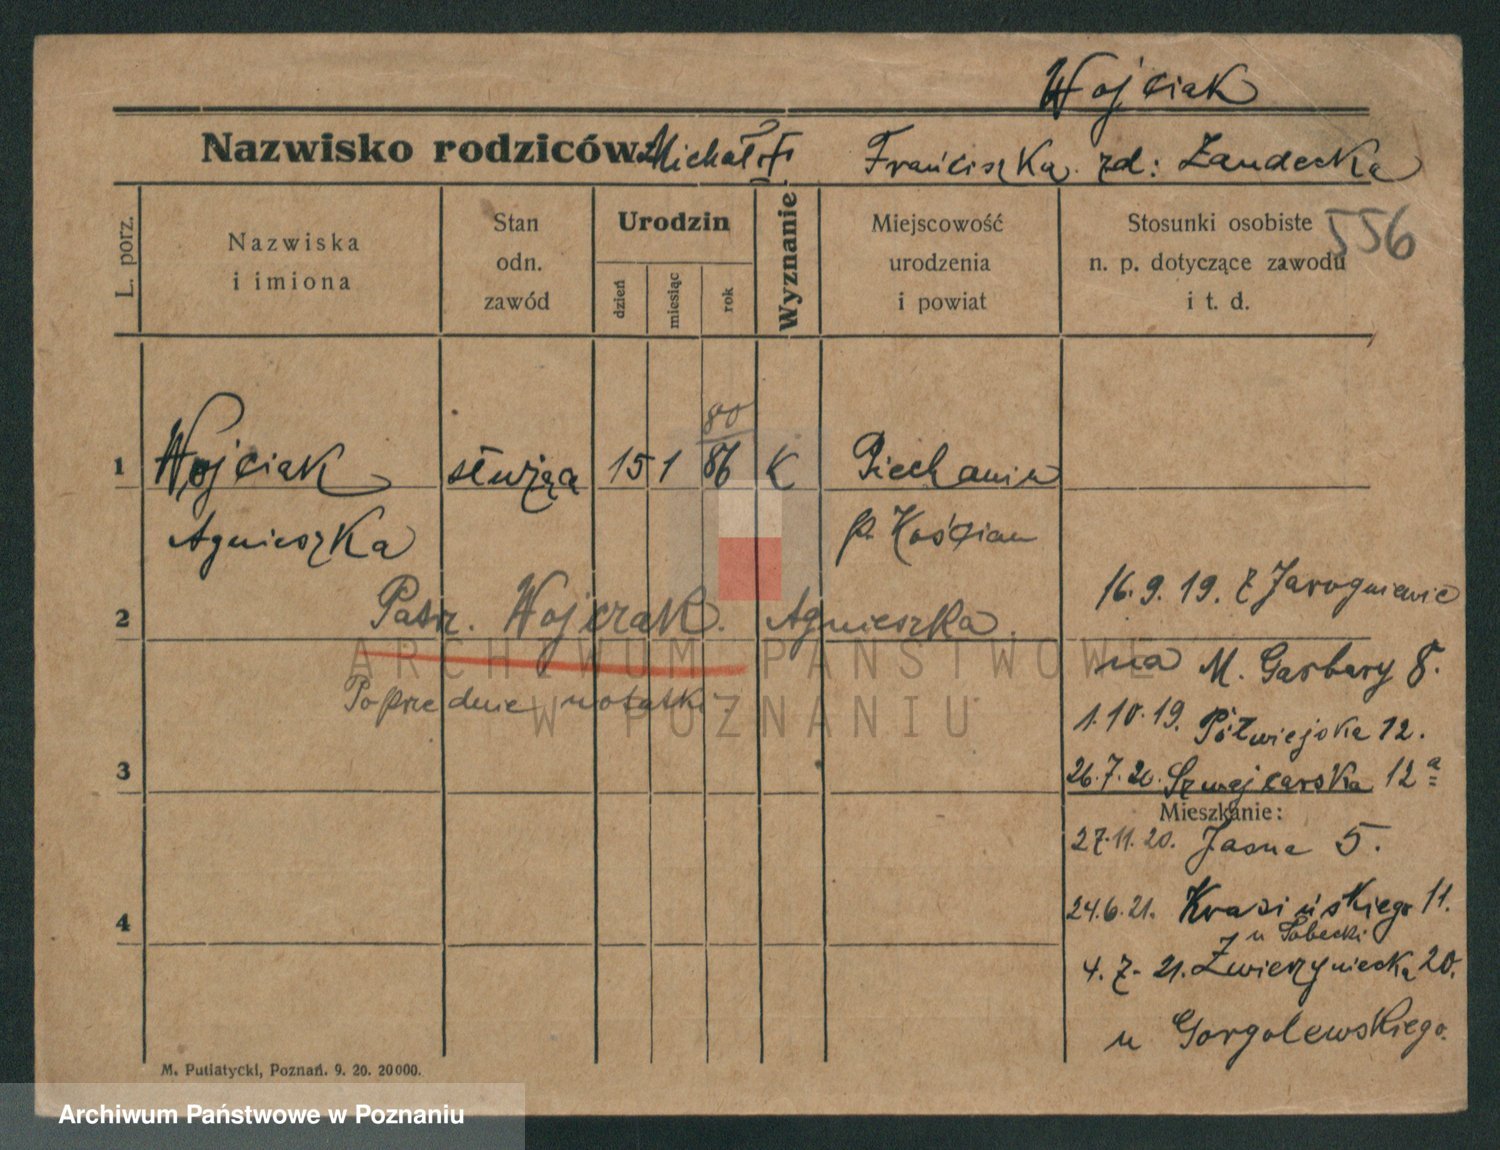 Wojciak
Nazwisko rodziców: Michał Franciszka rd: Zandecka
L. porz.
Nazwiska
i imiona
Stan
odn.
zawód
Urodzin
dzień
miesiąc
rok
Wyznanie
Miejscowość
urodzenia
i powiat
Stosunki osobiste
n. p. dotyczące zawodu
i t. d.
556
80
1 Wojciak służąca 15 1 86 K Piechanin
Agnieszka p. Kościan
16.9.19. z Jarogniewic
2 Patrz. Wojczak. Agnieszka.
ARCHIWUM PAŃSTWOWE
W POZNANIU
na M. Garbary 8.
Poprzednie notatki.
1.10.19. Półwiejska 12.
3
26.7.20. Szwajcarska 12a
Mieszkanie:
27.11.20. Jasna 5.
24.6.21. Krasińskiego 11.
4
u Sobecki
4.7.21. Zwierzyniecka 20.
u Gorgolewskiego.
M. Putiatycki, Poznań. 9. 20. 20000.
Archiwum Państwowe w Poznaniu